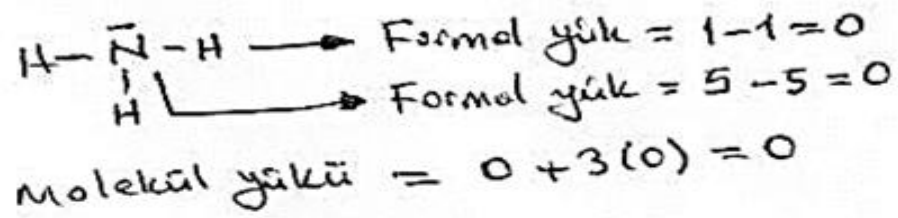 H–N̄–H → Formal yük = 1-1=0
H → Formal yük = 5-5=0
Molekül yükü = 0+3(0)=0